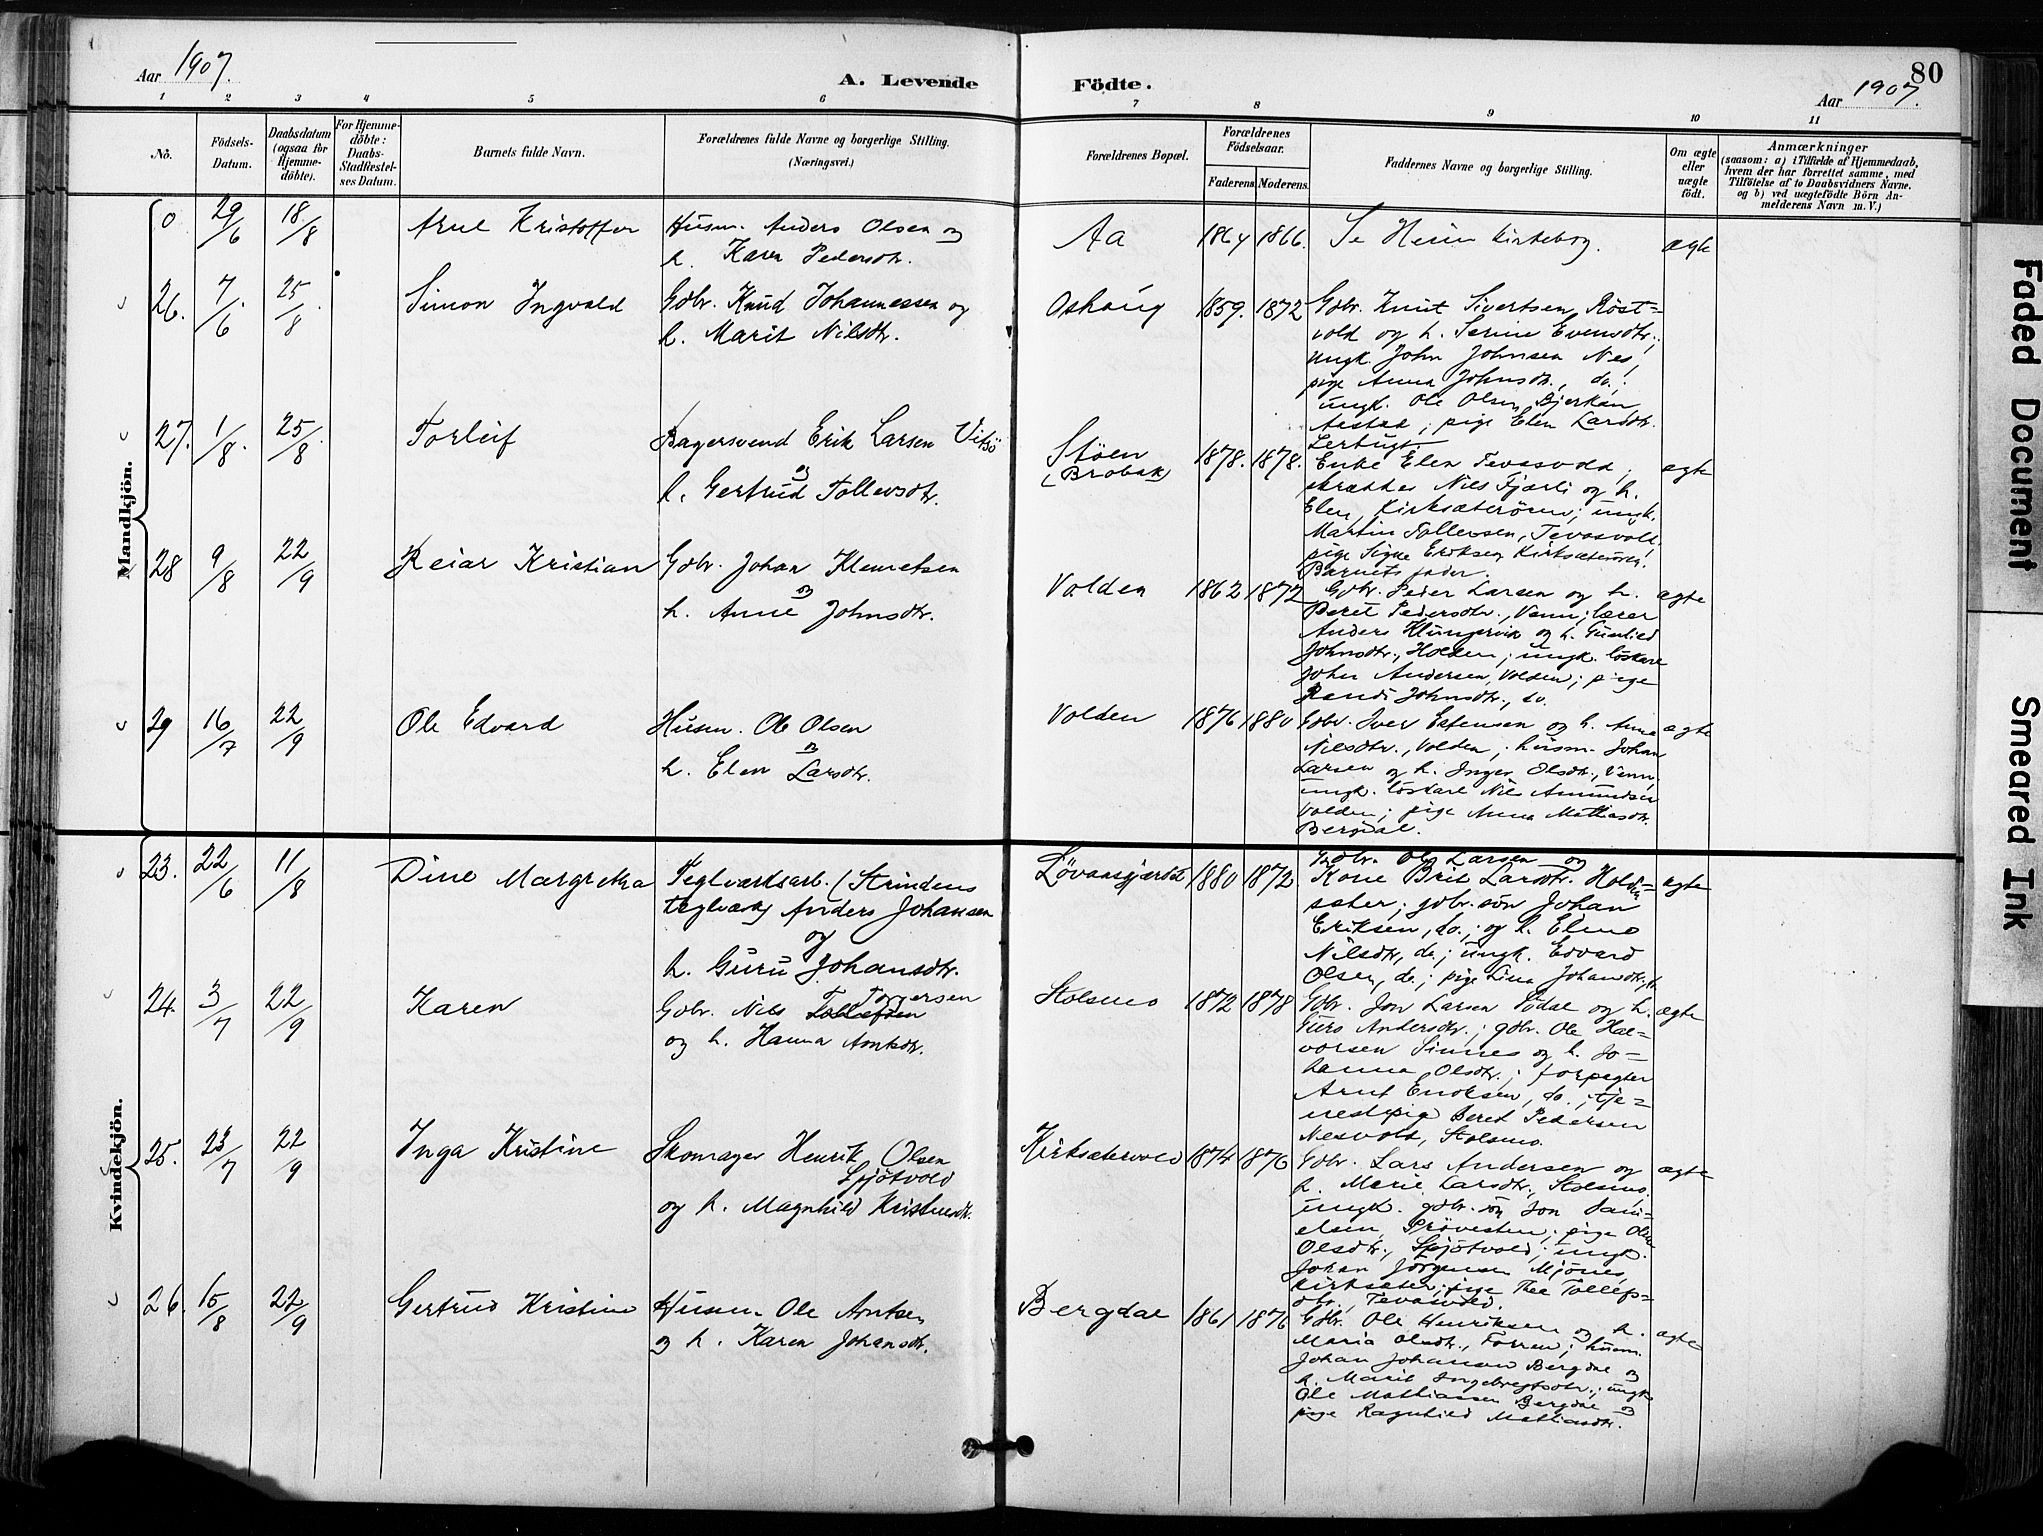 Aar 1907.
A. Levende Födte.
80
Aar 1907.
1 2 3 4 5 6 7 8 9 10 11
No.
Födsels-Datum.
Daabsdatum (ogsaa for Hjemme-döbte).
For Hjemme-döbte: Daabs-Stadfæstel-ses Datum.
Barnets fulde Navn.
Forældrenes fulde Navne og borgerlige Stilling.
(Næringsvei.)
Forældrenes Bopæl.
Forældrenes Födselsaar.
Faderens. Moderens.
Faddernes Navne og borgerlige Stilling.
Om ægte eller uægte födt.
Anmærkninger
(saasom: a) i Tilfælde af Hjemmedaab,
hvem der har forrettet samme, med
Tilföielse af to Daabsvidners Navne.
og b) ved uægtefödte Börn An-
melderens Navn m. V.)
Mandkjön.
0 29/6 18/8 Arne Kristoffer Husm. Anders Olsen og
h. Karen Pedersdtr.
Aa 1864 1866. Se Heim Kirkebog. ægte
26. 7/6 25/8 Simon Ingvald Gbr. Knud Johannessen og
h. Marit Nilsdtr.
Oshaug 1859. 1872 Gbr. Knut Sivertsen Röst=
vold og h. Serine Evensdtr.;
ungk. John Johnsen Nes;
pige Anna Johnsdtr., do.;
ungk. Ole Olsen Bjerkan
Aestad; pige Elen Larsdtr.
27. 1/8 25/8 Torleif Bagersvend Erik Larsen Vitsö
og
h. Gertrud Tollevsdtr.
Stöen
(Brobak)
1878. 1878. ægte
Enke Elen Tevasvold;
skrædder Nils Fjærli og h.
Elen, Kirksæterören; ungk.
Martin Tollevsen, Tevasvold.
pige Signe Eriksen Kirksæterören.
Barnets fader.
28 9/8 22/9 Reiar Kristian Gbr. Johan Klemetsen
og
h. Anne Johnsdtr.
Volden 1862 1872 Gbr. Peder Larsen og h. ægte
Beret Pedersdtr., Venn; lærer
Anders Klungervik og h. Gunhild
Johnsdtr., Holden; ungk. löskarl
John Andersen, Volden; pige
Randi Johnsdtr., do.
29 16/7 22/9 Ole Edvard Husm. Ole Olsen
og
h. Elen Larsdtr.
Volden 1876 1880 Gbr. Iver Estensen og h. Anne ægte
Nilsdtr., Volden; husm. Johan
Larsen og h. Inger Olsdtr., Venn,
ungk. löskarl Nils Amundsen
Volden; pige Anna Mathiasdtr.
Bergdal.
Kvindekjön.
23. 22/6 11/8 Dine Margretha Teglværksarb. (Strindens
teglværk) Anders Johansen
og
h. Guru Johansdtr.
1880 1872. ægte
Gbr. Ole Larsen og
Kone Brit Larsdtr. Holden=
sæter; gbr. sön Johan
Eriksen, do.; og h. Elene
Nilsdtr, do; ungk. Edvard
Olsen, do; pige Lina Johansdtr.
24. 3/7 22/9 Karen Gbr. Nils Tollefsen Torgersen
og h. Hanna Arntsdtr.
Stolsmo 1872 1878 Gbr. Jon Larsen Födal og h. ægte
Guro Andersdtr.; gbr. Ole Hal=
vorsen Sinnes og h. Jo=
hanna Olsdtr.; forpagter
Arnt Enoksen, do.; tje=
nestpige Beret Pedersen
Nesvold, Stolsmo.
25. 23/7 22/9 Inga Kristine Skomager Henrik Olsen
Spjötvold
og h. Magnhild Kristensdtr.
Kirksætervold 1874 1876 Gbr. Lars Andersen og ægte
h. Marie Larsdtr., Stolsmo.
ungk. gbr. sön Jon Dani=
elsen, Prövesten; pige Oline
Olsdtr., Spjötvold; ungk.
Johan Jörgensen Mjönes,
Kirksæter; pige Thea Tollefs=
dtr. Tevasvold.
26. 15/8 22/9 Gertrud Kristine Husm. Ole Arntsen
og h. Karen Johansdtr.
Bergdal 1861 1876 Gbr. Ole Henriksen og h. ægte
Maria Olsdtr., Forren; husm.
Johan Johansen Bergdal og
h. Marit Ingebregtsdtr.; ungk.
Ole Mathiassen Bergdal og
pige Ragnhild Mathiasdtr.
Faded Document
Smeared Ink